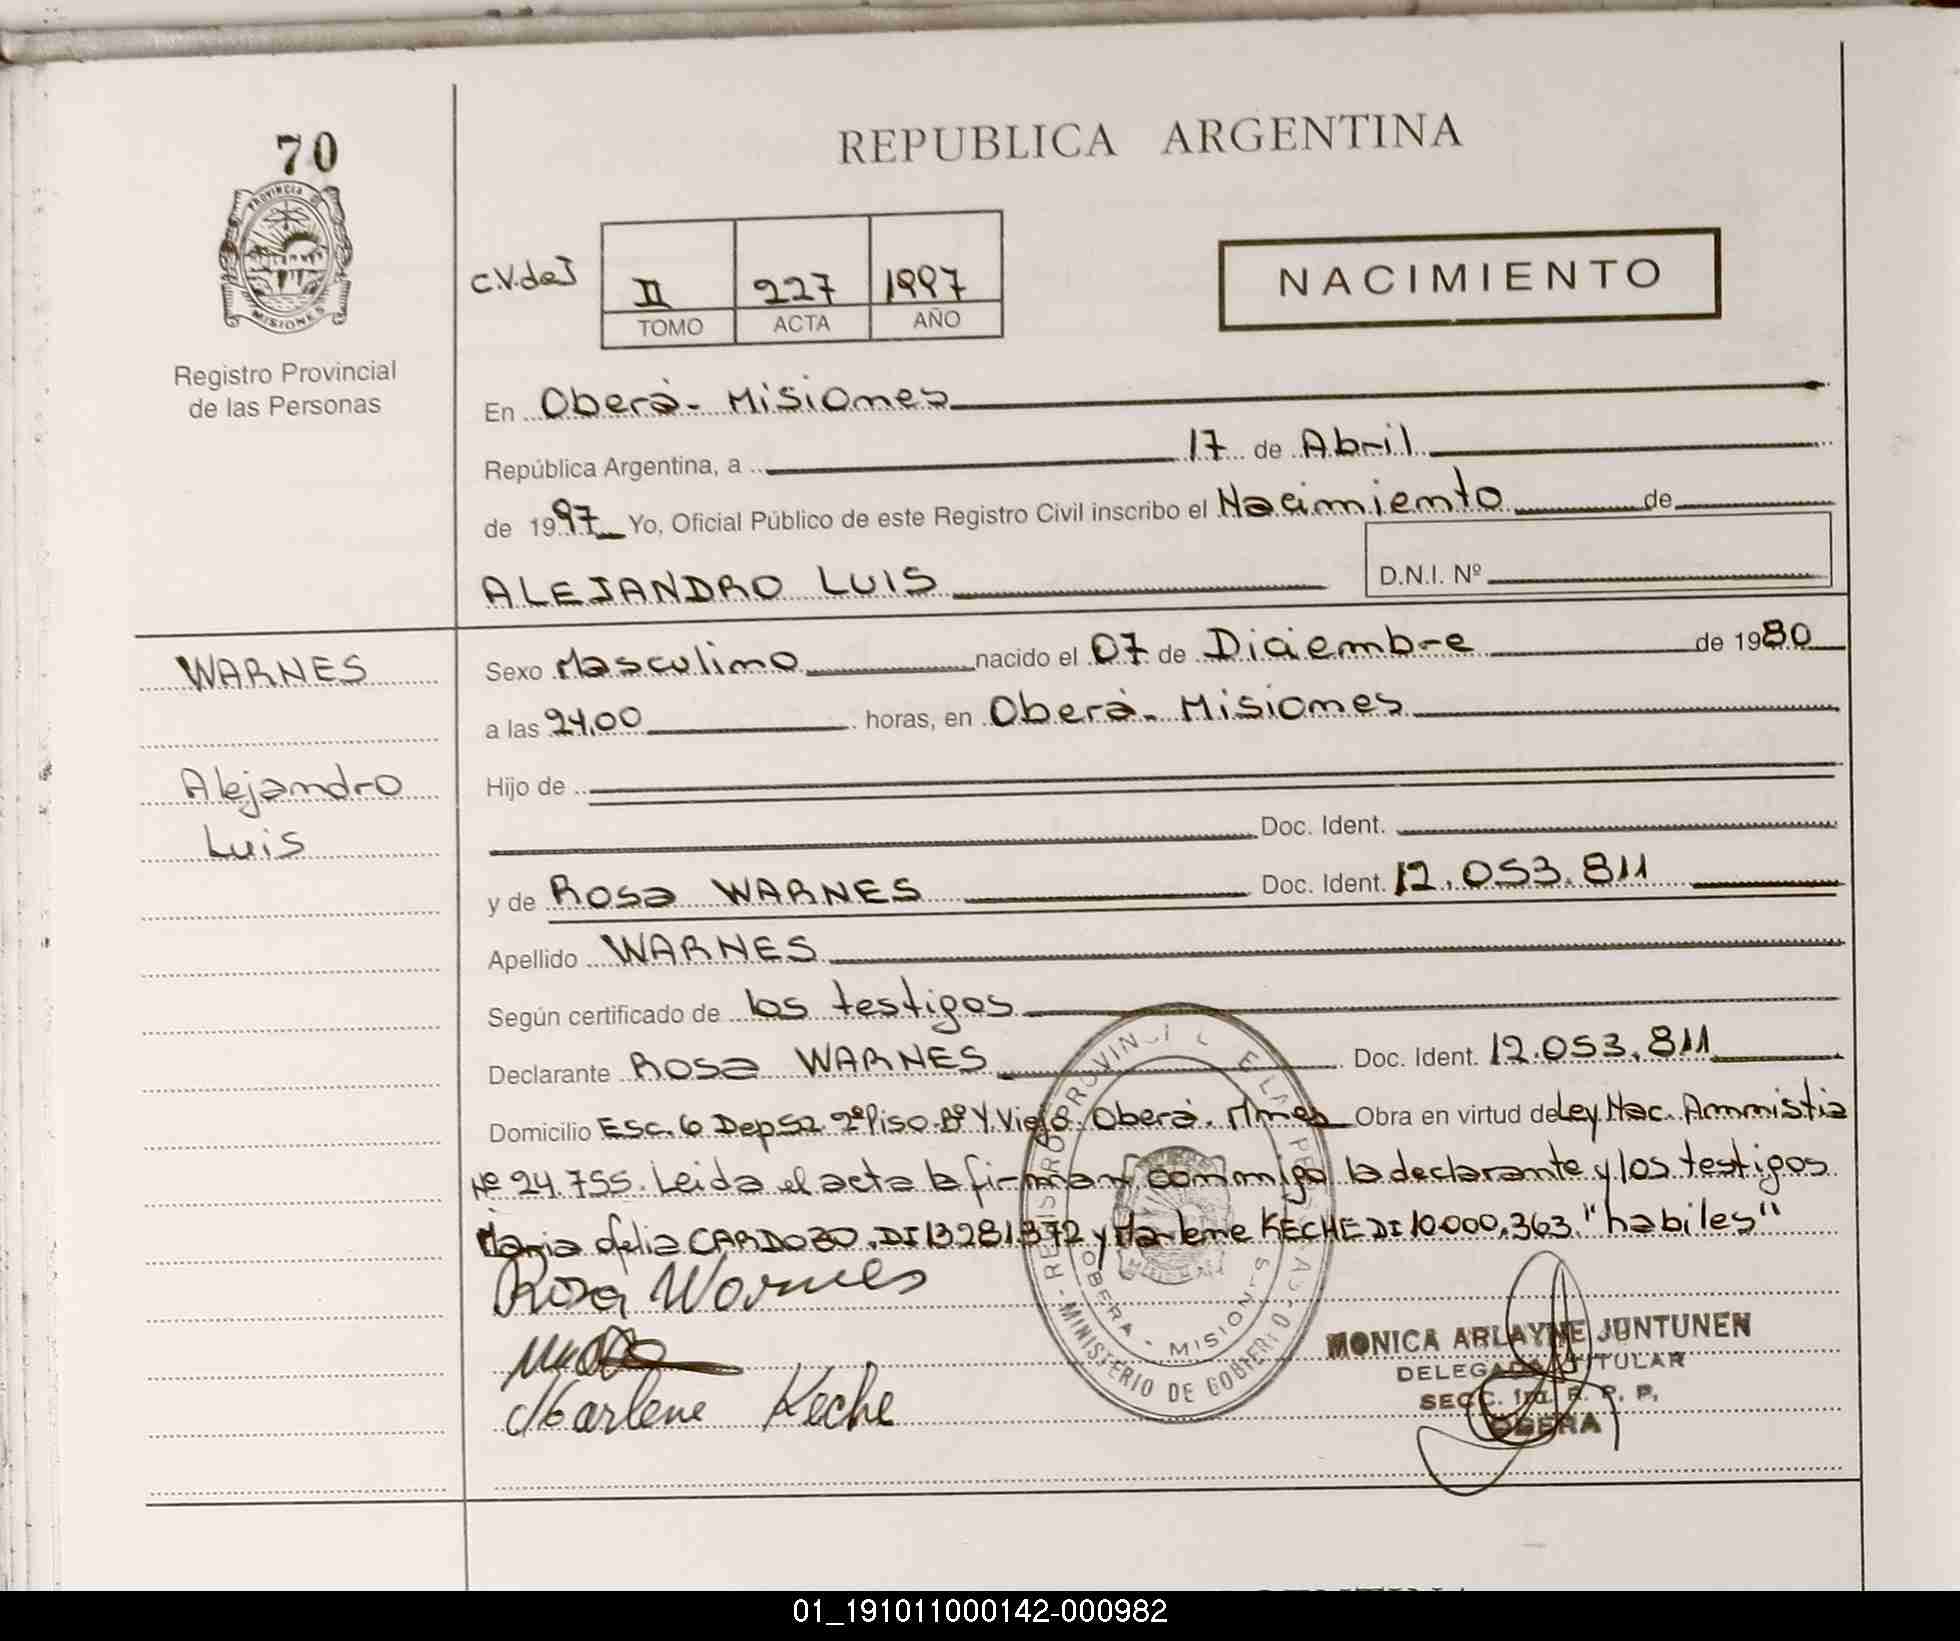 70
PROVINCIA DE MISIONES
Registro Provincial
de las Personas
REPUBLICA ARGENTINA
C.V.deJ II 227 1997
TOMO ACTA AÑO
NACIMIENTO
En Oberà - Misiones
República Argentina, a 17 de Abril
de 1997 Yo, Oficial Público de este Registro Civil inscribo el Nacimiento de
ALEJANDRO LUIS D.N.I. Nº
WARNES
Alejandro
Luis
Sexo Masculino nacido el 07 de Diciembre de 1980
a las 24,00 horas, en Oberà - Misiones
Hijo de
Doc. Ident.
y de Rosa WARNES Doc. Ident. 12.053.811
Apellido WARNES
Según certificado de los testigos
Declarante Rosa WARNES Doc. Ident. 12.053.811
Domicilio Esc. 6 Dep 52 2º Piso Bº Y. Viejo Oberà. Mnes Obra en virtud de Ley Nac. Ammistia
Nº 24.755. Leida el acta la firman conmigo la declarante y los testigos
Maria delia CARDOZO. DI 13281372 y Marlene KECHE DI 10.000.363. "habiles"
Rosa Warnes
Marlene Keche
REGISTRO PROVINCIAL DE LAS PERSONAS
MINISTERIO DE GOBIERNO
OBERA - MISIONES
MONICA ARLAYNE JUNTUNEN
DELEGADA TITULAR
SECC. 1ra. R. P. P.
OBERA
01_191011000142-000982